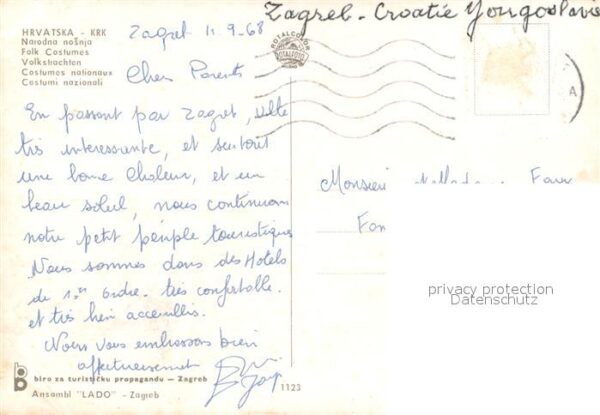 Zagreb - Croatie Yougoslavie
HRVATSKA - KRK
Narodna nošnja
Folk Costumes
Volkstrachten
Costumes nationaux
Costumi nazionali
ROTALCOLOR
ROTALFOTO
A
Zagret 11.9.68
Chers Parents
En passant par Zagret, ville
très interessante, et surtout
une bonne chaleur, et un
beau soleil, nous continuons
notre petit périple touristique
Nous sommes dans des Hotels
de 1er ordre. très confortable.
et très bien accueillis.
Nous vous embrassons bien
affectueusement
Monsieur
privacy protection
Datenschutz
biro za turističku propagandu — Zagreb
Ansambl "LADO" - Zagreb
1123